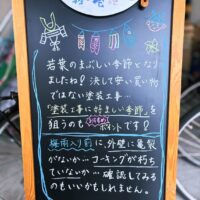 若葉のまぶしい季節となり
ましたね♪ 決して安い買い物
ではない塗装工事…
「塗装工事に好ましい季節」を
狙うのもおすすめポイントです?
梅雨入り前に、外壁に亀裂
がないか…コーキングが朽ち
ていないか…確認してみる
のもいいかもしれません。